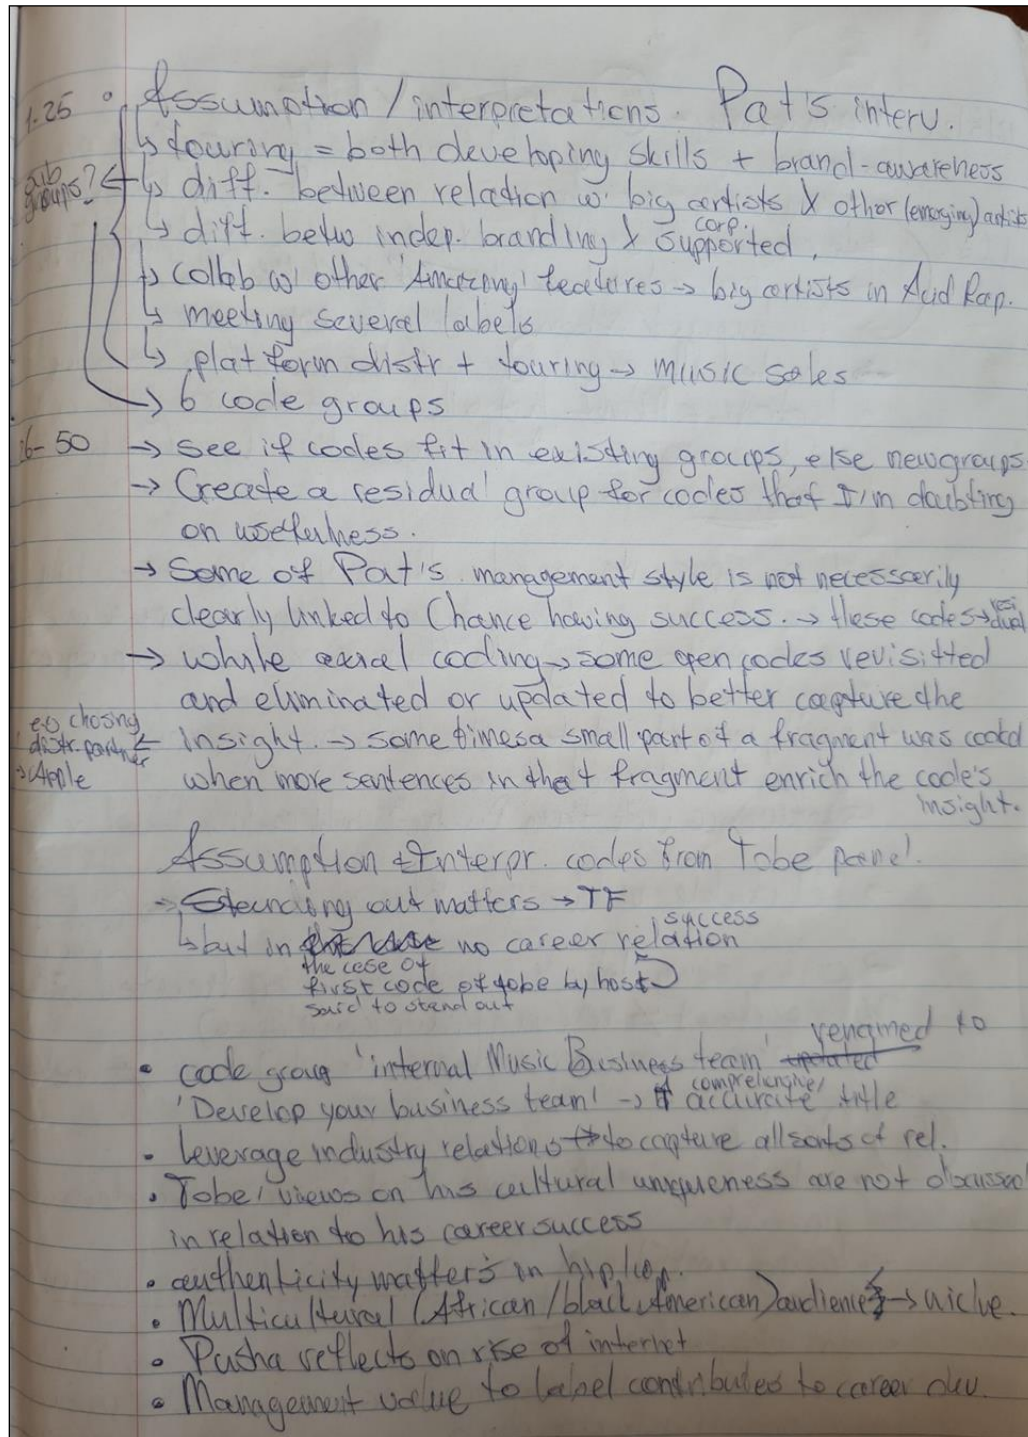 1-25 • Assumption / interpretations. Pat's interv.
↳ touring = both developing skills + brand-awareness
sub groups? ← ↳ diff. between relation w. big artists & other (emerging) artists
↳ diff. betw indep. branding & corp. supported.
↳ collab w/ other 'Amazing' features → big artists in Acid Rap.
↳ meeting several labels
↳ platform distr + touring → music sales
→ 6 code groups
26-50 → see if codes fit in existing groups, else new groups
→ Create a 'residual' group for codes that I'm doubting
on usefulness.
→ Some of Pat's management style is not necessarily
clearly linked to Chance having success. → these codes → residual
→ while axial coding → some open codes revisitted
and eliminated or updated to better capture the
insight. → sometimes a small part of a fragment was coded
eg chosing
distr. partner ←
→ Apple
when more sentences in that fragment enrich the code's
insight.
Assumption & Interpr. codes from Tobe panel.
→ Standing out matters → TF
↳ but in the case of first code of tobe by host no career success relation
said to stand out
• code group 'internal Music Business team' renamed to
'Develop your business team' → comprehensive/ accurate title
• leverage industry relations → to capture all sorts of rel.
• Tobe' views on his cultural uniqueness are not discussed
in relation to his career success
• authenticity matters in hiphop.
• Multicultural (African/black American) audience → niche.
• Pusha reflects on rise of internet
• Management value to label contributes to career dev.